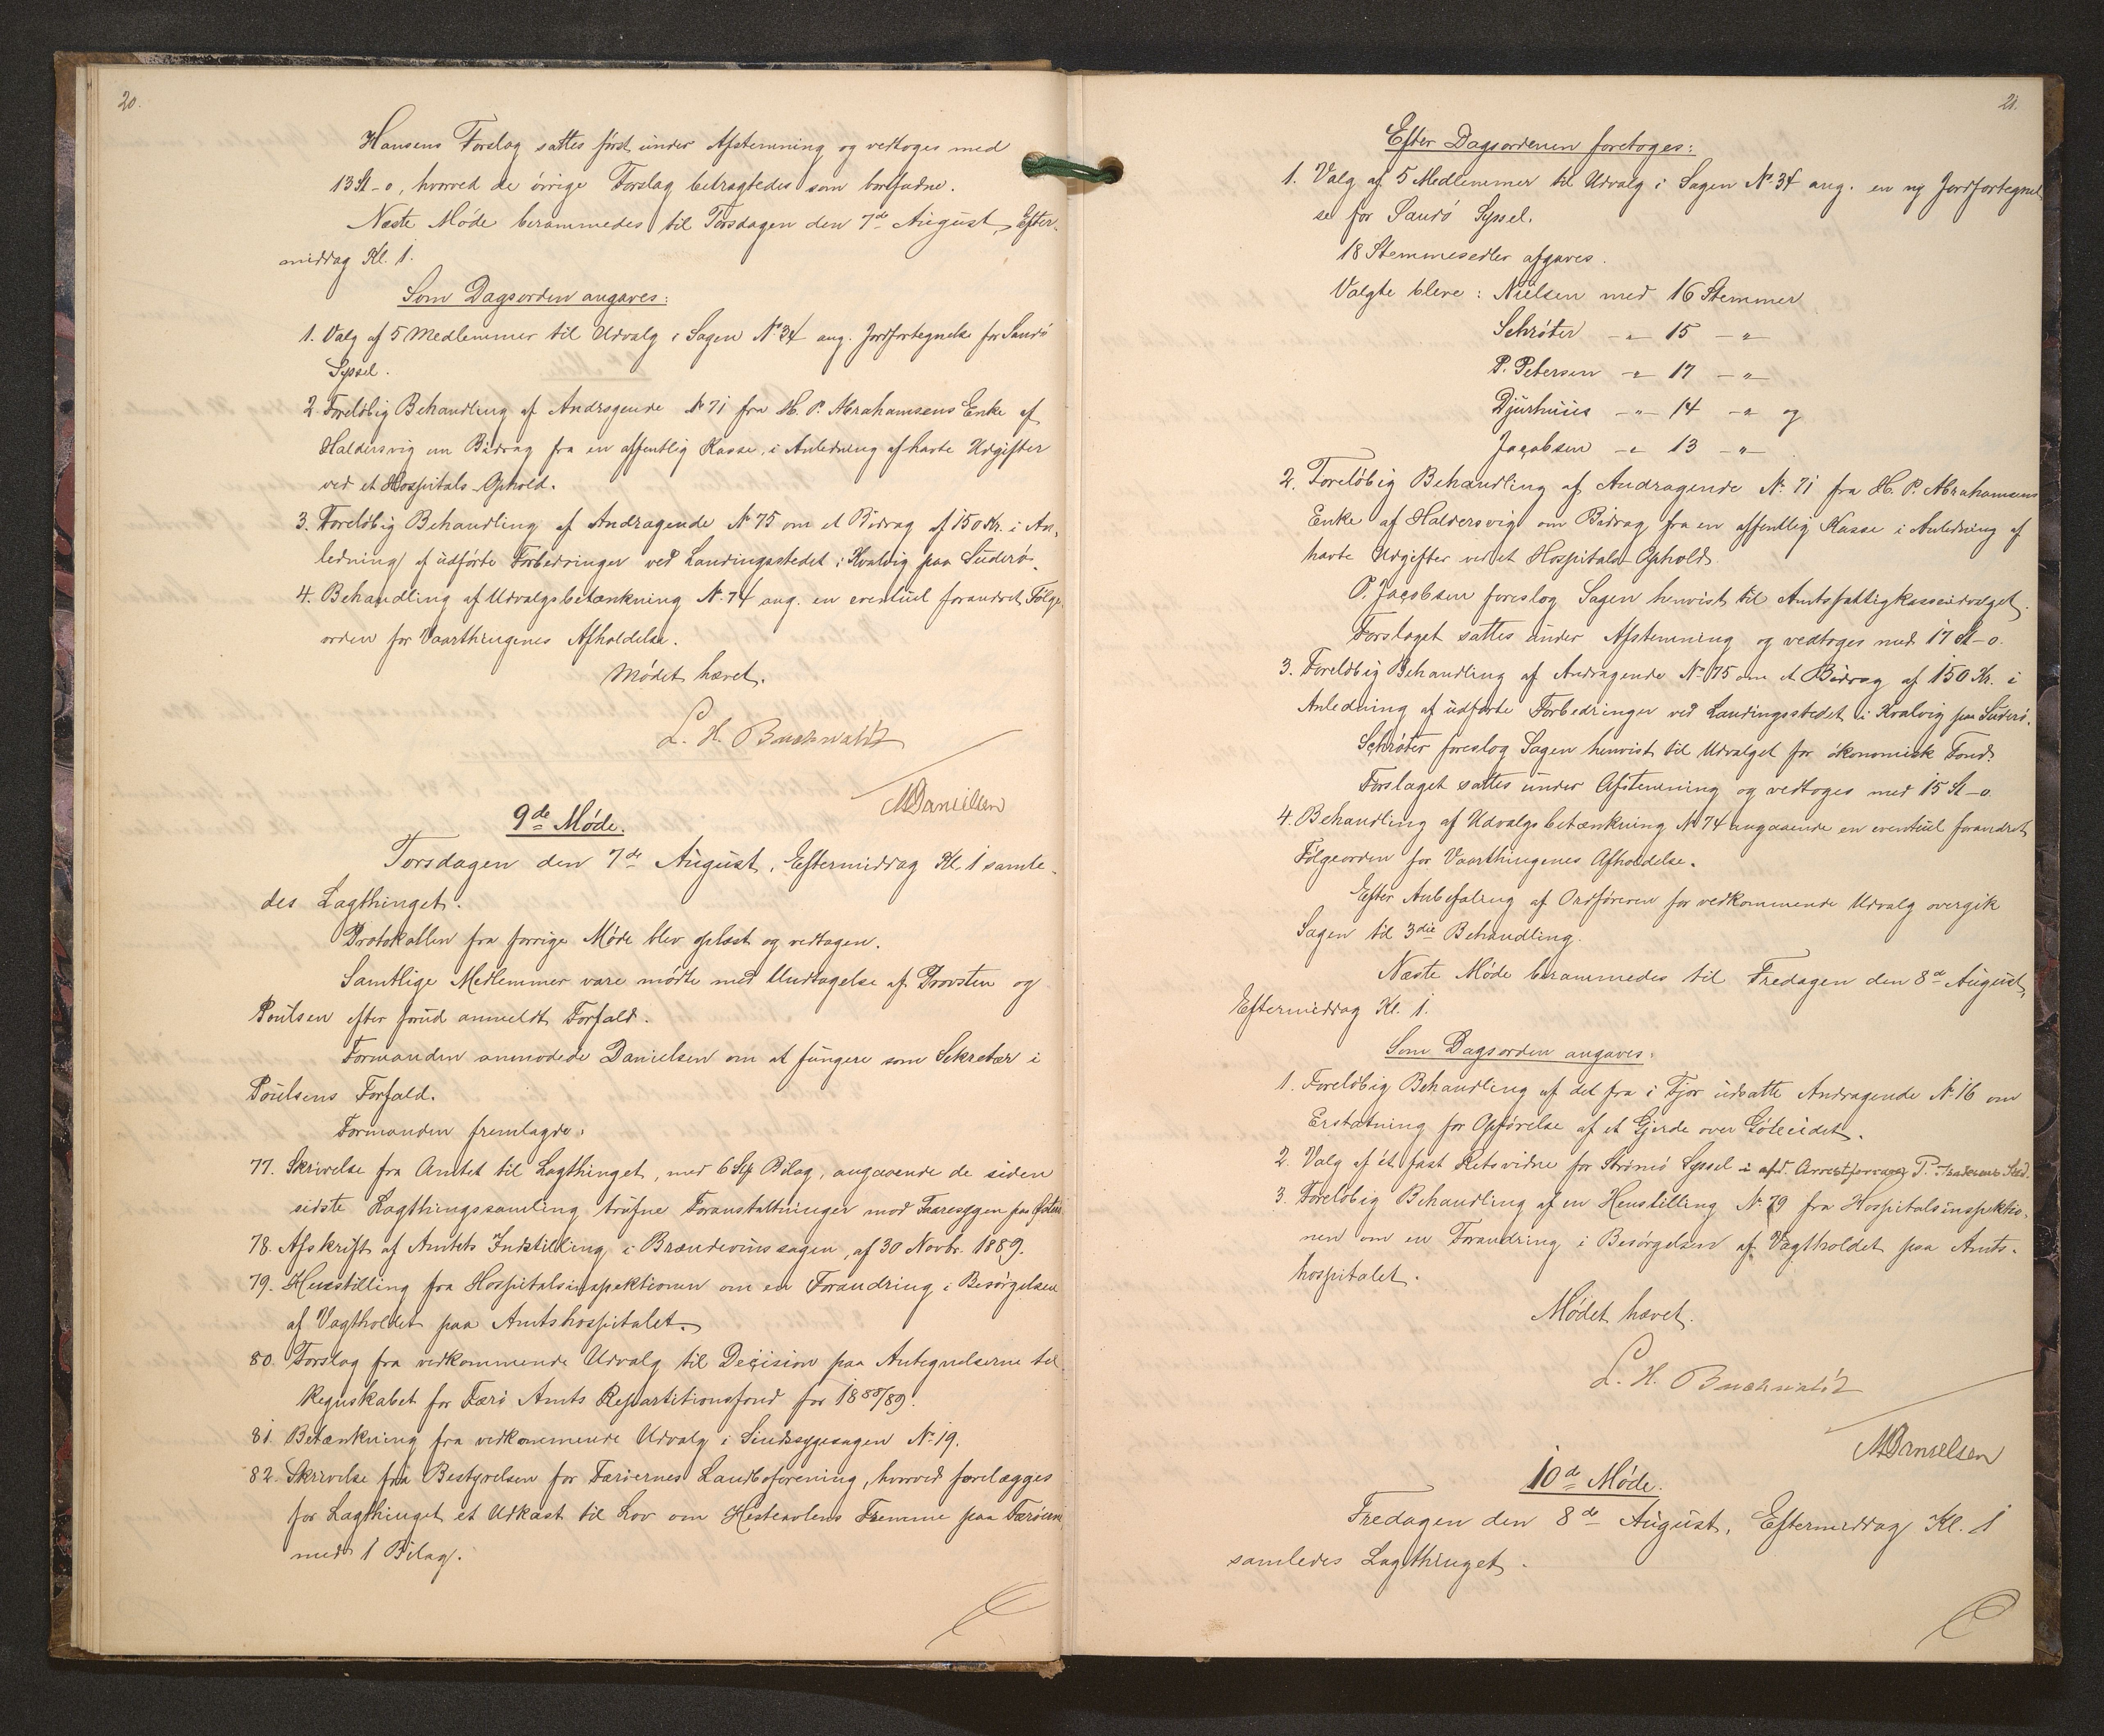 20.
Hansens Forslag sattes først under Afstemning og vedtoges med
13 St-0, hvorved de øvrige Forslag betragtedes som bortfaldne.
Næste Møde berammedes til Torsdagen den 7de August, Efter-
middag Kl. 1.
Som Dagsorden angaves:
1. Valg af 5 Medlemmer til Udvalg i Sagen No 34 ang. Jordfortegnelse for Sandø
Syssel.
2. Foreløbig Behandling af Andragende No 71 fra H. P. Abrahamsens Enke af
Haldersvig om Bidrag fra en offentlig Kasse, i Anledning af havte Udgifter
ved et Hospitals-Ophold.
3. Foreløbig Behandling af Andragende No 75 om et Bidrag af 150 Kr. i An-
ledning af udførte Forbedringer ved Landingsstedet i Kvalvig paa Suderø.
4. Behandling af Udvalgsbetænkning No. 74 ang. en eventuel forandret Følge-
orden for Vaarthingenes Afholdelse.
Mødet hævet.
L. H. Buchwaldt
MDanielsen
9de Møde.
Torsdagen den 7de August, Eftermiddag Kl. 1 samle-
des Lagthinget.
Protokollen fra forrige Møde blev oplæst og vedtagen.
Samtlige Medlemmer vare mødte med Undtagelse af Provsten og
Poulsen efter forud anmeldt Forfald.
Formanden anmodede Danielsen om at fungere som Sekretær i
Poulsens Forfald.
Formanden fremlagde:
77. Skrivelse fra Amtet til Lagthinget, med 6 Bilag, angaaende de siden
sidste Lagthingssamling trufne Foranstaltninger mod Faaresygen paa
78. Afskrift af Amtets Indstilling i Brændevinssagen, af 30 Novbr. 1889.
79. Henstilling fra Hospitalsinspektionen om en Forandring i Besørgelsen
af Vagtholdet paa Amtshospitalet.
80. Forslag fra vedkommende Udvalg til Decision paa Antegnelserne til
Regnskabet for Færø Amts Repartitionsfond for 1888/89.
81. Betænkning fra vedkommende Udvalg i Sindssygesagen No. 19.
82. Skrivelse fra Bestyrelsen for Færøernes Landboforening, hvorved forelægges
for Lagthinget et Udkast til Lov om Hesteavlens Fremme paa Færøerne
med 1 Bilag.
21.
Efter Dagsordenen foretoges:
1. Valg af 5 Medlemmer til Udvalg i Sagen No. 34 ang. en ny Jordfortegnel
se for Sandø Syssel.
18 Stemmesedler afgaves.
Valgte bleve: Nielsen med 16 Stemmer
Schrøter -"- 15 -"-
P. Petersen -"- 17 -"-
Djurhuus -"- 14 -"- og
Jacobsen -"- 13 -"-
2. Foreløbig Behandling af Andragende No. 71 fra H. P. Abrahamsens
Enke af Haldersvig om Bidrag fra en offentlig Kasse i Anledning af
havte Udgifter ved et Hospitals-Ophold.
P. Jacobsen foreslog Sagen henvist til Amtsfattigkasseudvalget.
Forslaget sattes under Afstemning og vedtoges med 17 St-0.
3. Foreløbig Behandling af Andragende No. 75 om et Bidrag af 150 Kr. i
Anledning af udførte Forbedringer ved Landingsstedet i Kvalvig paa Suderø.
Schrøter foreslog Sagen henvist til Udvalget for økonomisk Fond.
Forslaget sattes under Afstemning og vedtoges med 15 St-0
4. Behandling af Udvalgsbetænkning No 74 angaaende en eventuel forandret
Følgeorden for Vaarthingenes Afholdelse.
Efter Anbefaling af Ordføreren for vedkommende Udvalg overgik
Sagen til 3die Behandling.
Næste Møde berammedes til Fredagen den 8de August,
Eftermiddag Kl. 1.
Som Dagsorden angaves:
1. Foreløbig Behandling af det fra i Fjor udsatte Andragende No. 16 om
Erstatning for Opførelse af et Gjerde over Gøteeidet.
2. Valg af ét fast Retsvidne for Strømø Syssel i afd. P. Sted.
3. Foreløbig Behandling af en Henstilling No. 79 fra Hospitalsinspektio-
nen om en Forandring i Besørgelsen af Vagtholdet paa Amts-
hospitalet.
Mødet hævet.
L. H. Buchwaldt
MDanielsen
10de Møde.
Fredagen den 8de August, Eftermiddag Kl. 1
samledes Lagthinget.